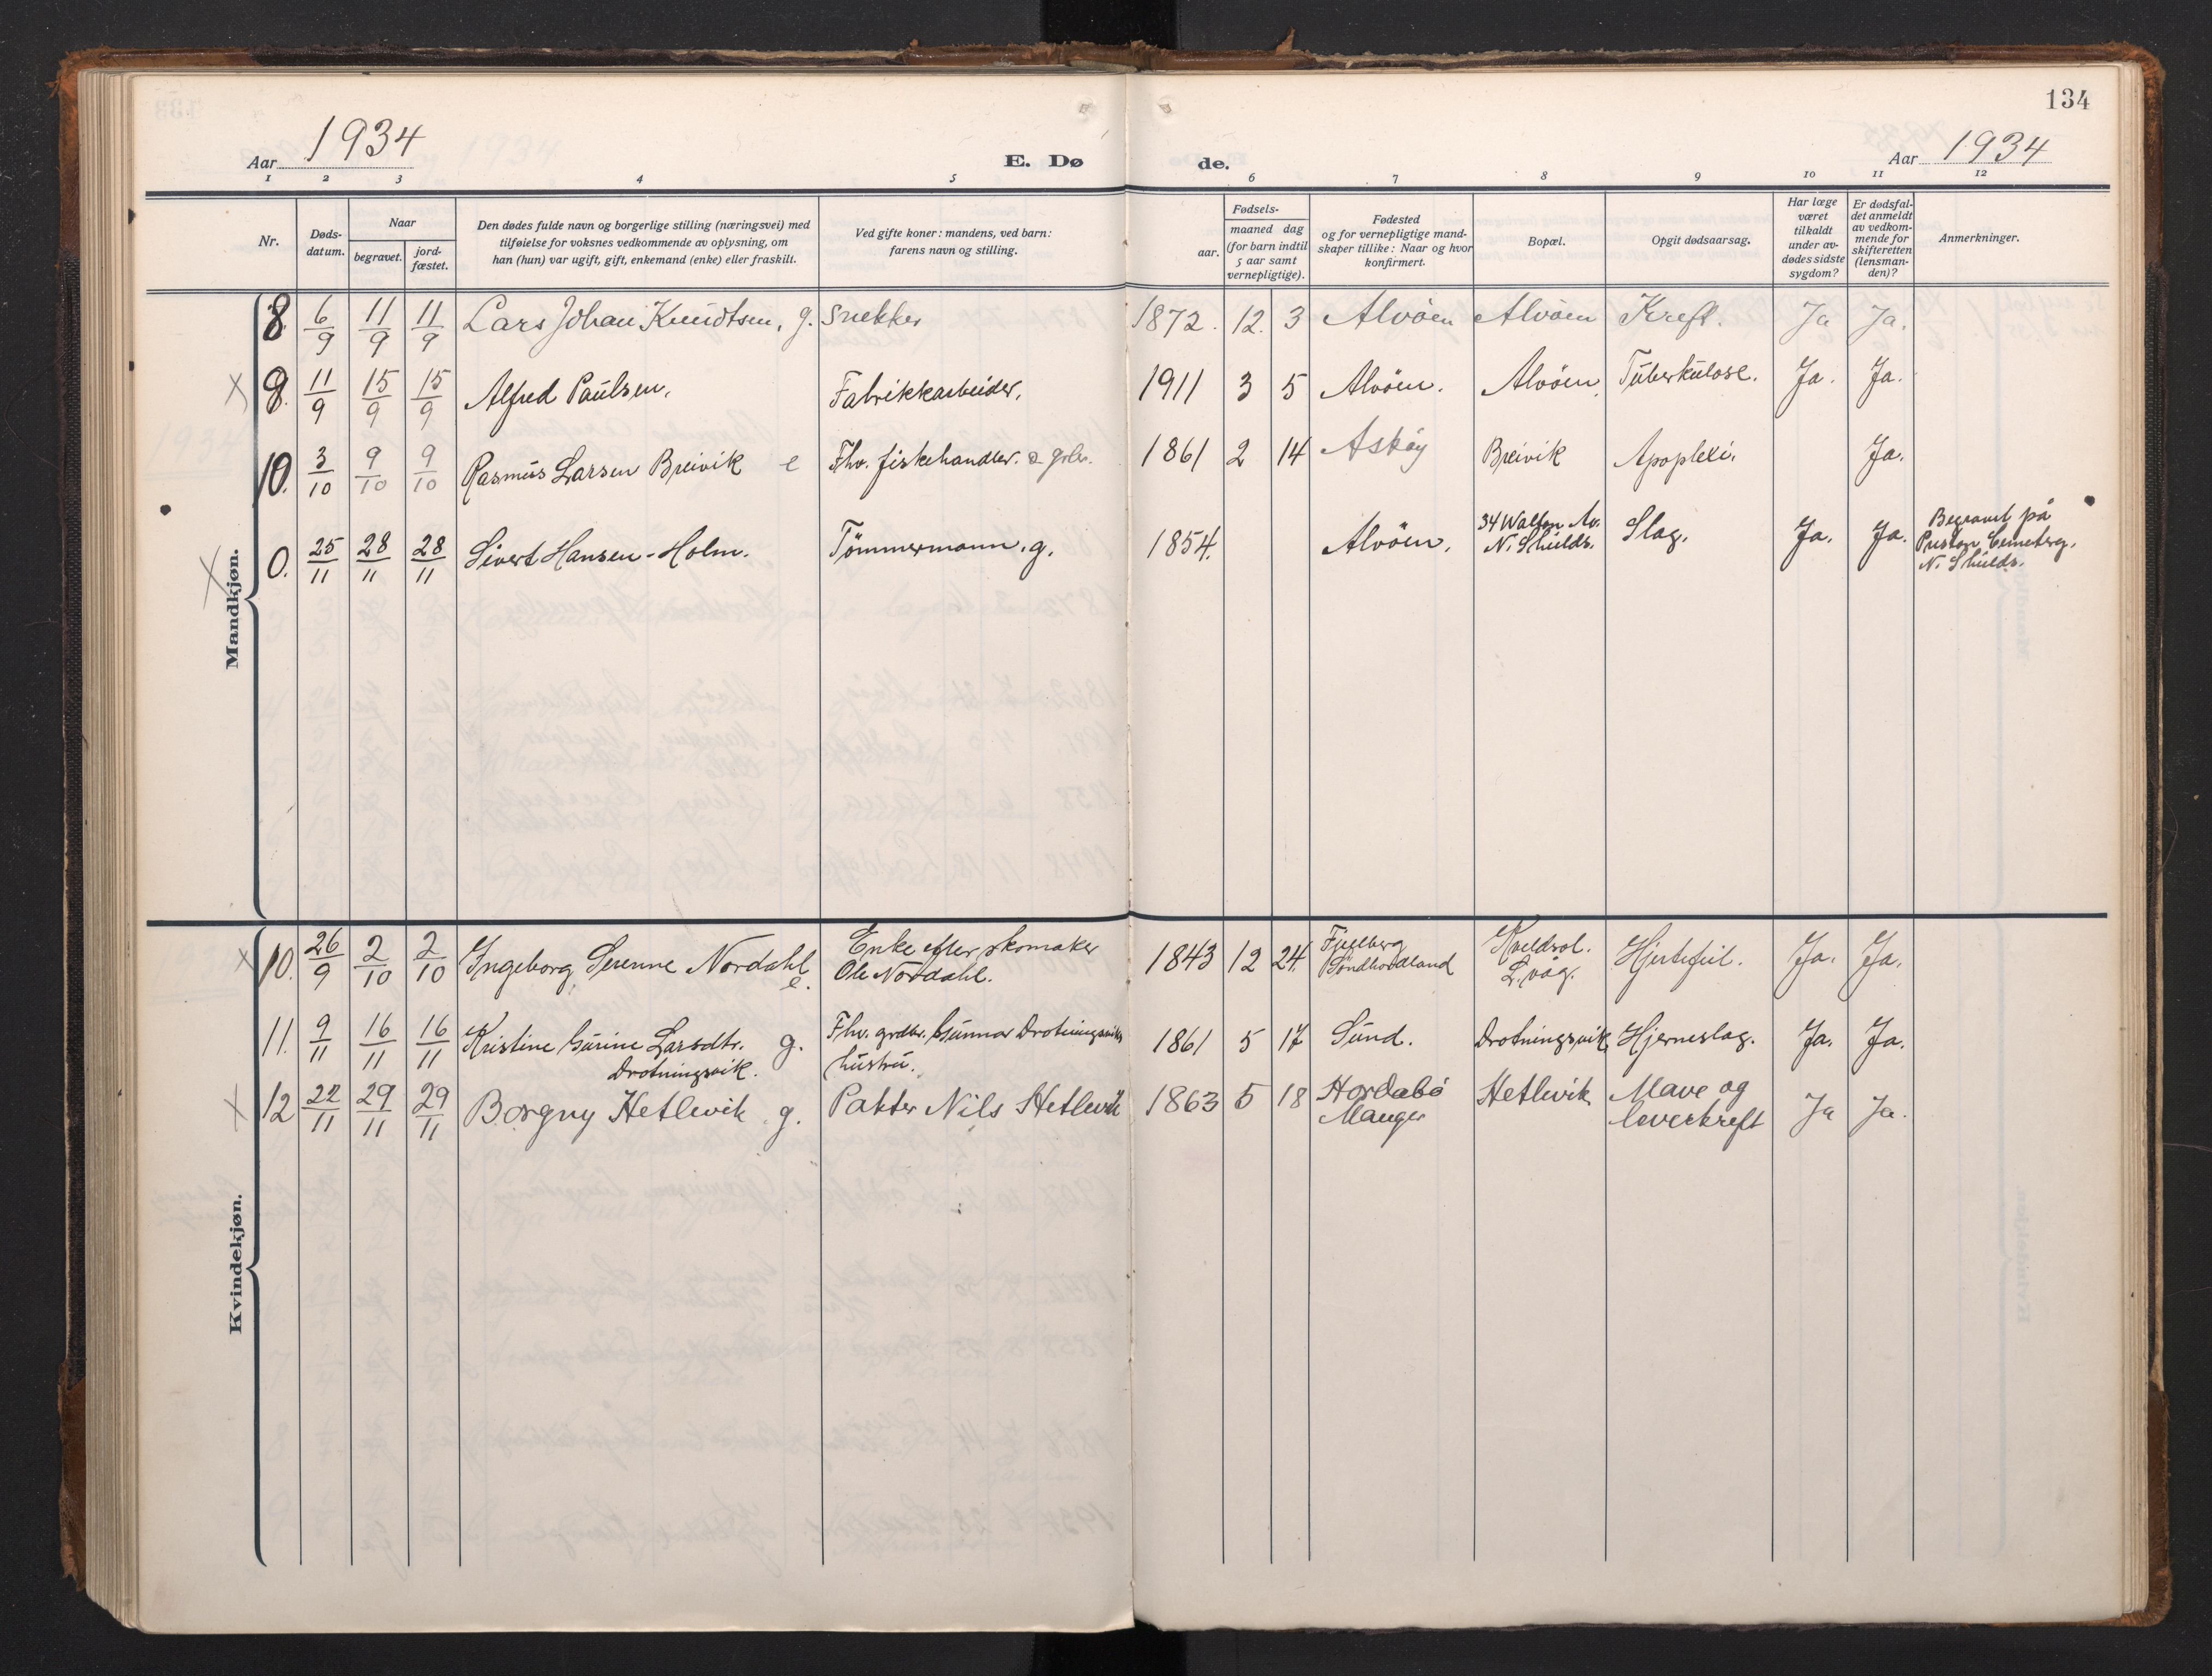 134
Aar 1934 E. Dø de. Aar 1934
1 2 3 4 5 6 7 8 9 10 11 12
Nr. Døds-datum. Naar begravet. jord-fæstet. Den dødes fulde navn og borgerlige stilling (næringsvei) med tilføielse for voksnes vedkommende av oplysning, om han (hun) var ugift, gift, enkemand (enke) eller fraskilt. Ved gifte koner: mandens, ved barn: farens navn og stilling. Fødsels- aar. maaned dag (for barn indtil 5 aar samt vernepligtige). Fødested og for vernepligtige mand-skaper tillike: Naar og hvor konfirmert. Bopæl. Opgit dødsaarsag. Har læge været tilkaldt under av-dødes sidste sygdom? Er dødsfal-det anmeldt av vedkom-mende for skifteretten (lensman-den)? Anmerkninger.
Mandkjøn.
8. 6/9 11/9 11/9 Lars Johan Knudtsen, g. Snekker 1872. 12. 3 Alvöen Alvöen Kreft. Ja Ja.
X 9. 11/9 15/9 15/9 Alfred Paulsen. Fabrikkarbeider. 1911 3 5 Alvöen. Alvöen. Tuberkulose. Ja. Ja.
10. 3/10 9/10 9/10 Rasmus Larsen Breivik e Fhv. fiskehandler. 1861 2 14 Askøy Breivik Apoplexi. Ja.
X 0. 25/11 28/11 28/11 Sivert Hansen-Holm. Tömmermann. g. 1854. Alvöen. 34 Walton Av. N. Shields. Slag. Ja. Ja. Begravet på Preston Cemetery. N. Shields.
Kvindekjøn.
X 10. 26/9 2/10 2/10 Ingeborg Serenne Nordahl e. Enke efter skomaker Ole Nordahl. 1843 12 24. Fjelberg Söndhordland Kveldsol. L.våg. Hjertefeil. Ja. Ja.
11. 9/11 16/11 16/11 Kristine Gurine Larsdtr. Drotningsvik. g. Fhv. grdbr. Gunnar Drotningsviks hustru. 1861 5 17 Sund. Drotningsvik Hjerneslag. Ja. Ja.
X 12 22/11 29/11 29/11 Borgny Hetlevik g. Pakter Nils Hetlevik 1863 5 18 Hordabö Manger Hetlevik Mave og leverkreft Ja Ja.